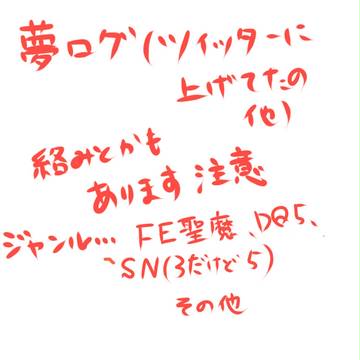 夢ログ(ツイッターに
上げてたの
他)
絡みとかも
あります注意
ジャンル… FE聖魔、DQ5、
SN(3だけど5)
その他